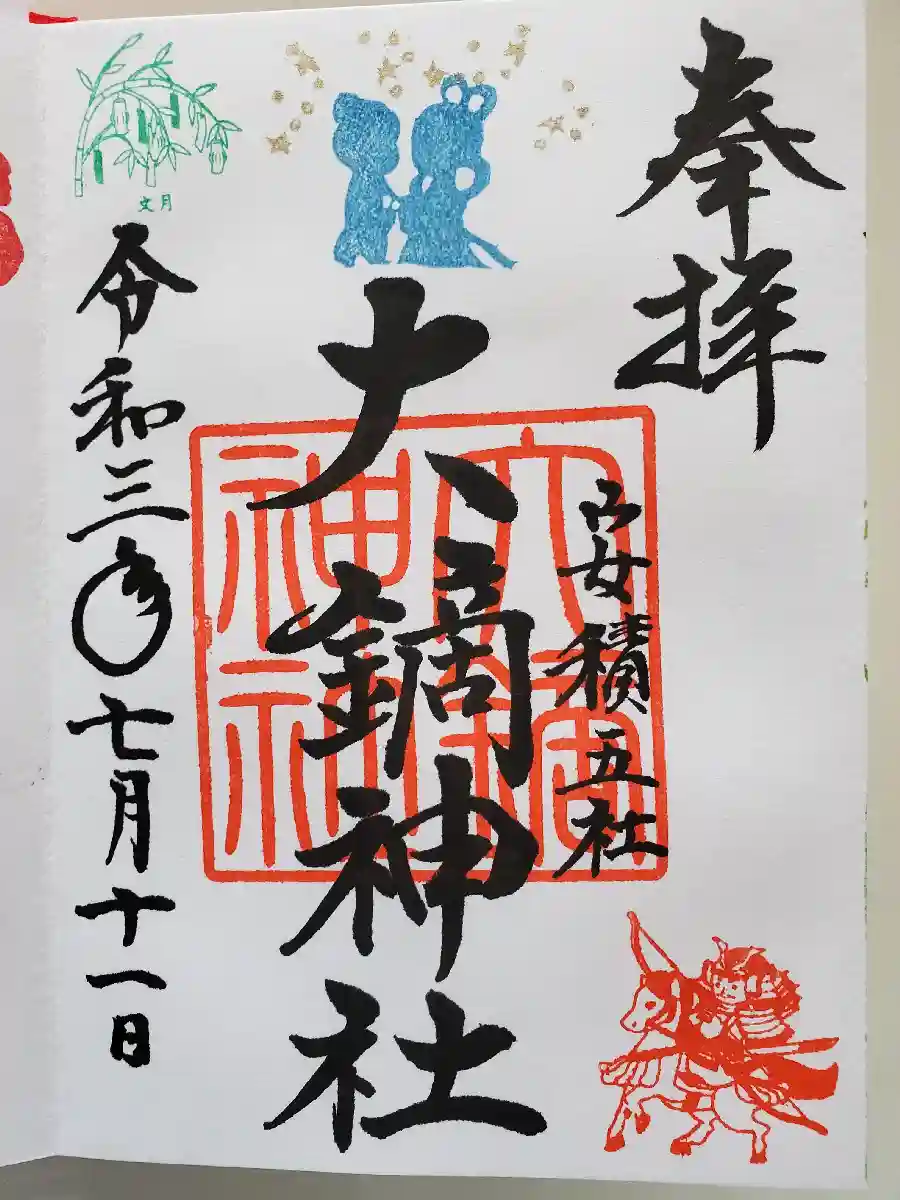 奉拝
安積五社
大鏑神社
文月
令和三年七月十一日